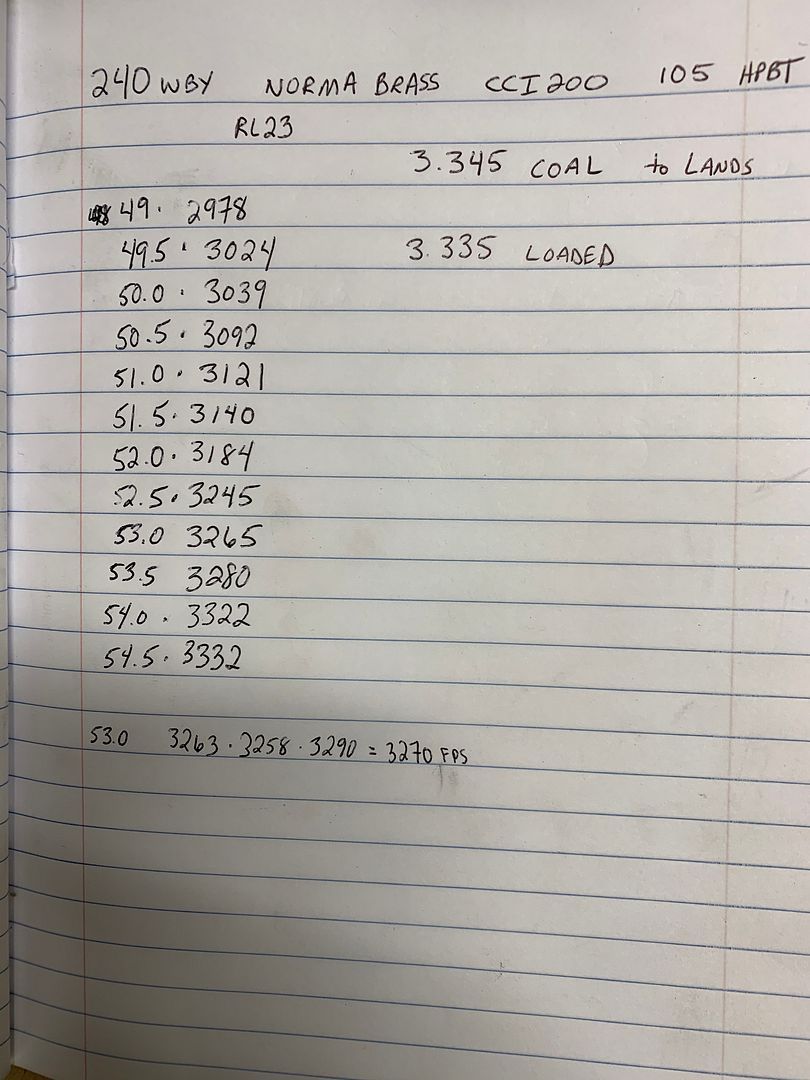 240 WBY NORMA BRASS CCI 200 105 HPBT
RL23
3.345 COAL to LANDS
49. 2978
49.5 · 3024 3.335 LOADED
50.0 · 3039
50.5 · 3092
51.0 · 3121
51.5 · 3140
52.0 · 3184
52.5 · 3245
53.0 3265
53.5 3280
54.0 · 3322
54.5 · 3332
53.0 3263 · 3258 · 3290 = 3270 FPS